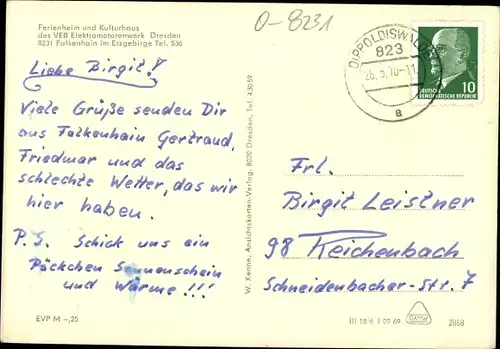 Ferienheim und Kulturhaus
des VEB Elektromotorenwerk Dresden
8231 Falkenhain im Erzgebirge Tel. 536
O-8231
DIPPOLDISWALDE
823
26.5.70-11
a
DEUTSCHE
DEMOKRATISCHE REPUBLIK
10
Liebe Birgit!
Viele Grüße senden Dir
aus Falkenhain Gertraud,
Friedmar und das
schlechte Wetter, das wir
hier haben.
P.S. Schick uns ein
Päckchen Sonnenschein
und Wärme!!!
W. Kenne, Ansichtskarten-Verlag, 8020 Dresden, Tel. 43059
Frl.
Birgit Leistner
98 Reichenbach
Schneidenbacher-Str. 7
EVP M -,25
III 18/6 J 09 69
2868